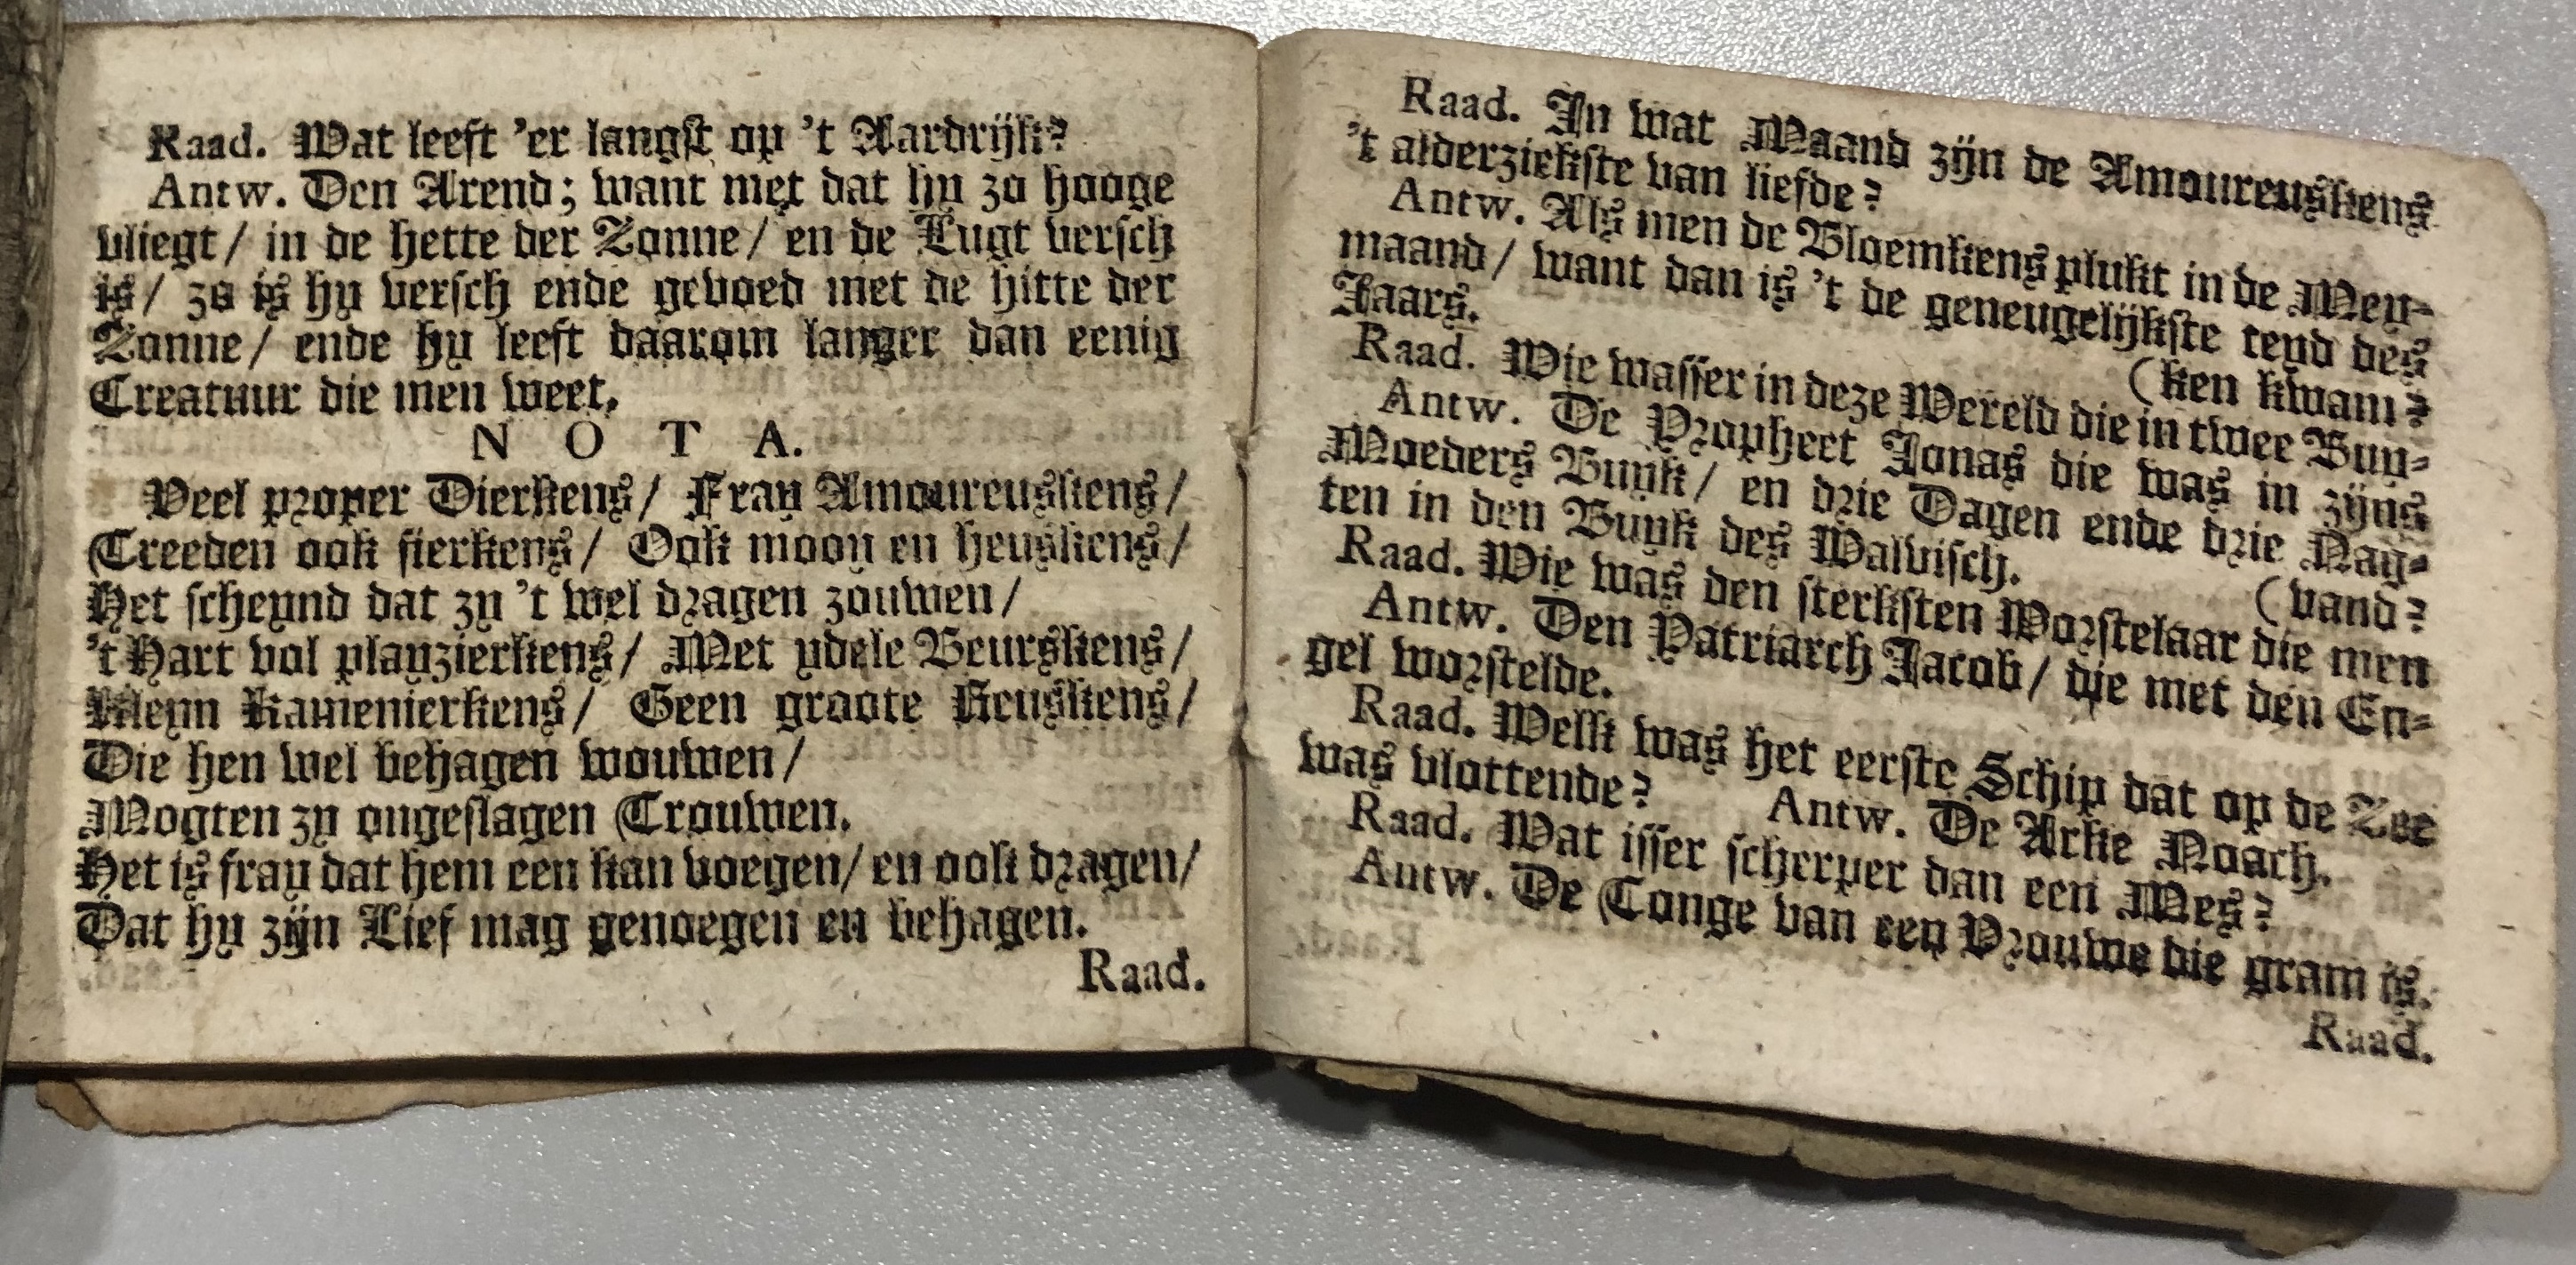 Raad. Wat leeft 'er langst op 't Aardrijk?
Antw. Den Arend; want met dat hy zo hooge
vliegt / in de hette der Zonne / en de Lugt versch
is / zo is hy versch ende gevoed met de hitte der
Zonne / ende hy leeft daarom langer dan eenig
Creatuur die men weet.
N O T A.
Veel proper Dierkens / Fray Amoureuskens /
Treeden ook fierkens / Ook mooy en heuskens /
Het scheynd dat zy 't wel dragen zouwen /
't Hart vol playzierkens / Met ydele Beurskens /
Kleyn Kamenierkens / Geen groote Keuskens /
Die hen wel behagen wouwen /
Mogten zy ongeslagen Trouwen.
Het is fray dat hem een kan voegen / en ook dragen /
Dat hy zijn Lief mag genoegen en behagen.
Raad.
Raad. In wat Maand zijn de Amoureuskens
't alderziekste van liefde?
Antw. Als men de Bloemkens plukt in de Mey-
maand / want dan is 't de geneugelijkste teyd des
Jaars.
(ken kwam?
Raad. Wie wasser in deze Wereld die in twee Buy-
Antw. De Propheet Jonas die was in zijns
Moeders Buyk / en drie Dagen ende drie Nag-
ten in den Buyk des Walvisch.
(vand?
Raad. Wie was den sterksten Worstelaar die men
Antw. Den Patriarch Jacob / die met den En-
gel worstelde.
Raad. Welk was het eerste Schip dat op de Zee
was vlottende? Antw. De Arke Noach.
Raad. Wat isser scherper dan een Mes?
Antw. De Tonge van een Vrouwe die gram is.
Raad.